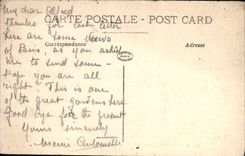 My dear Alfred
CARTE POSTALE - POST CARD
Thanks for last letter
Correspondance
Adresse
here are some views
of Paris, as you asked
me to send some -
Hope you are all
right! This is one
of the great gardens here
Good bye for the present
Yours sincerely